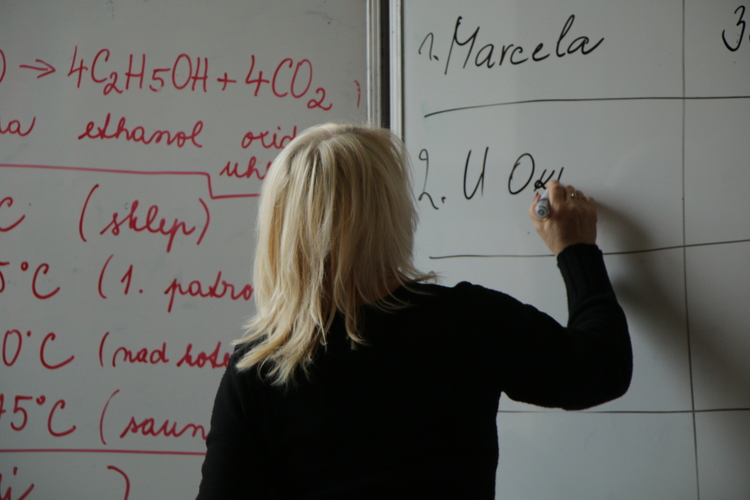 ) → 4C₂H5OH + 4CO₂
ethanol oxid
uh
C (sklep)
5°C (1. patro
0°C (nad kote
45°C (saun
)
1. Marcela
3.
2. U